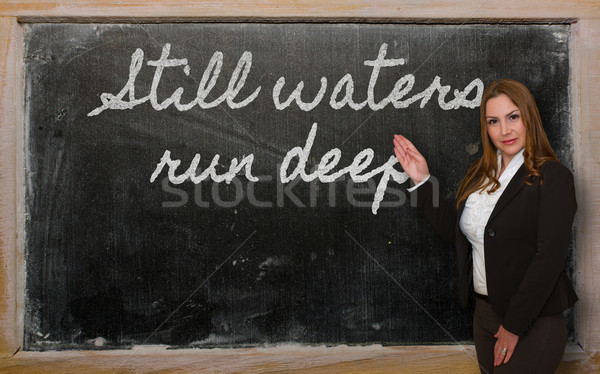 Still waters
run deep
stockfresh